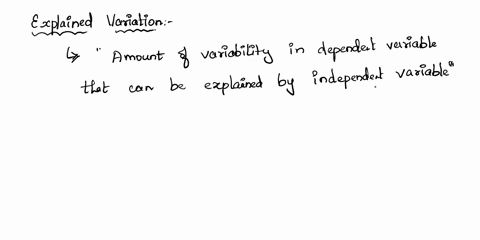 Explained Variation:-
↳ " Amount of variability in dependent variable
that can be explained by independent variable"